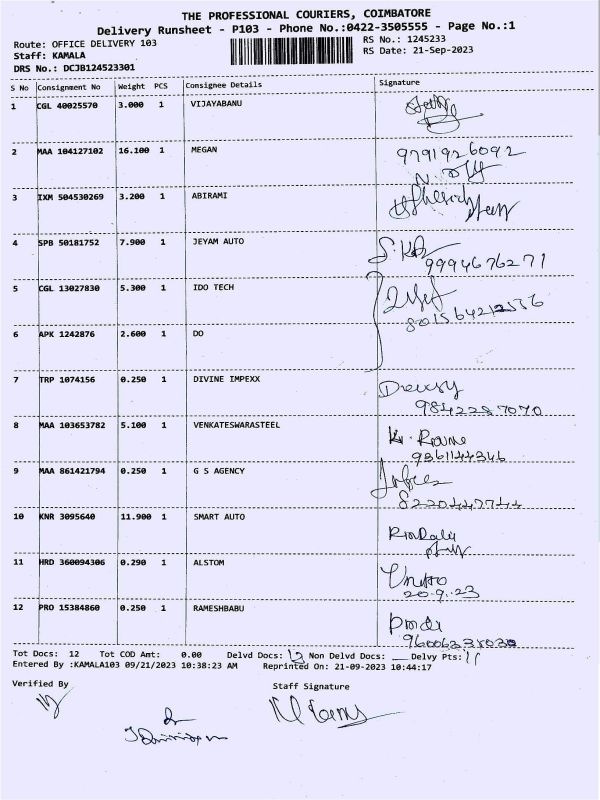 THE PROFESSIONAL COURIERS, COIMBATORE
Delivery Runsheet - P103 - Phone No.:0422-3505555 - Page No.:1
Route: OFFICE DELIVERY 103
RS No.: 1245233
Staff: KAMALA
RS Date: 21-Sep-2023
DRS No.: DCJB124523301
S No Consignment No Weight PCS Consignee Details Signature
1 CGL 40025570 3.000 1 VIJAYABANU
2 MAA 104127102 16.100 1 MEGAN 9791926092
3 IXM 504530269 3.200 1 ABIRAMI
4 SPB 50181752 7.900 1 JEYAM AUTO
9994676271
5 CGL 13027830 5.300 1 IDO TECH
6 APK 1242876 2.600 1 DO
7 TRP 1074156 0.250 1 DIVINE IMPEXX
8 MAA 103653782 5.100 1 VENKATESWARASTEEL
9361144346
9 MAA 861421794 0.250 1 G S AGENCY
10 KNR 3095640 11.900 1 SMART AUTO
11 HRD 360094306 0.290 1 ALSTOM
20-9-23
12 PRO 15384860 0.250 1 RAMESHBABU
Tot Docs: 12 Tot COD Amt: 0.00 Delvd Docs: 12 Non Delvd Docs: __ Delvy Pts: 11
Entered By :KAMALA103 09/21/2023 10:38:23 AM Reprinted On: 21-09-2023 10:44:17
Verified By Staff Signature